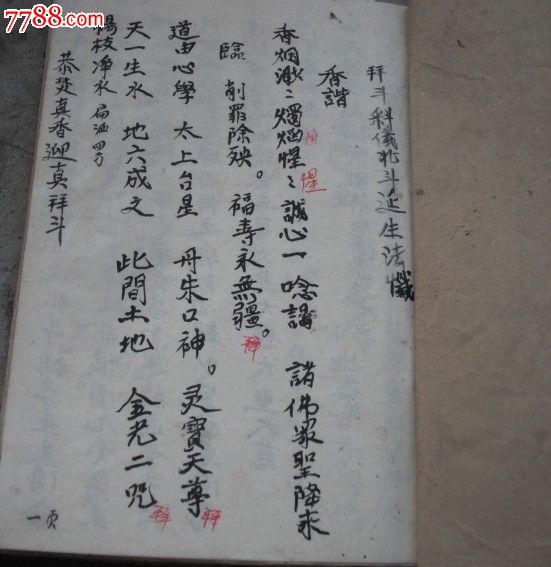 7788.com
拜斗科儀北斗延生法懺
香諧
香烟渺〻燭烟惺〻誠心一唸請 諸佛眾聖降來
惺
臨 削罪除殃。福壽永無疆。拜
道由心學 太上台星 丹朱口神。灵寶天尊 拜
天一生水 地六成文 此間土地 金光二咒 拜
楊枝净水 扁洒四方
恭焚真香迎真拜斗
一頁